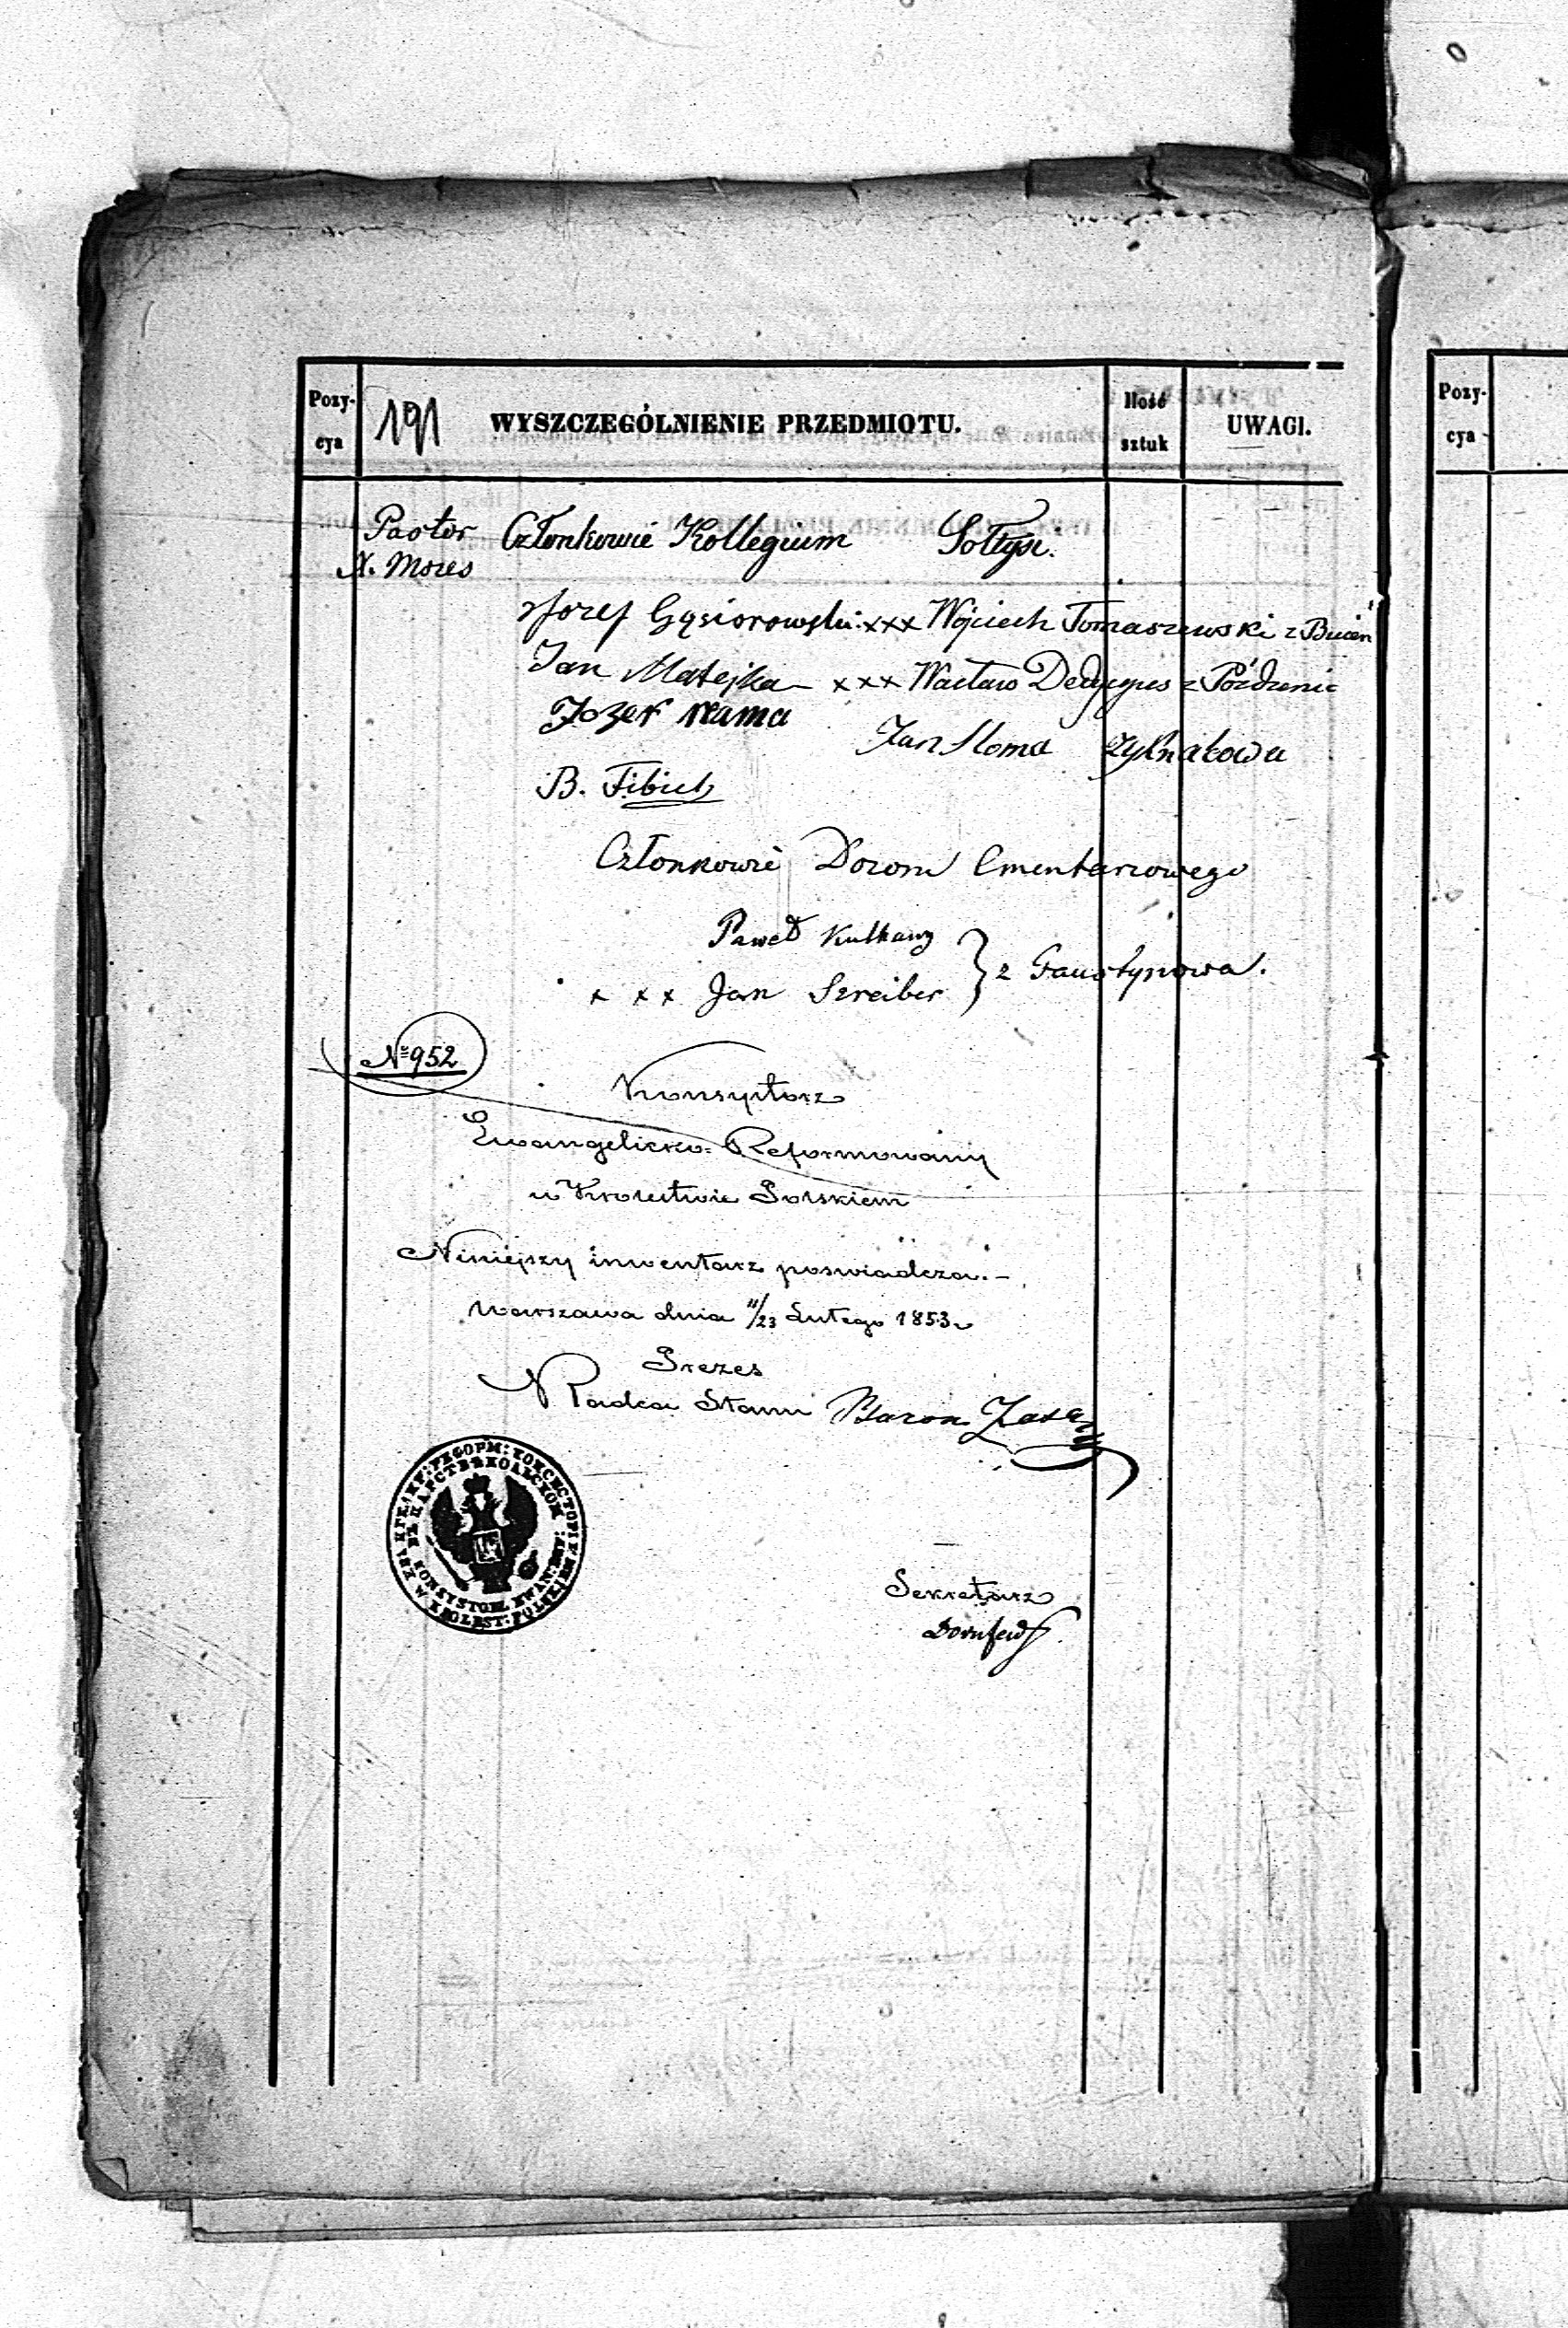 Pozy-
cya
191
WYSZCZEGÓLNIENIE PRZEDMIOTU.
Ilość
sztuk
UWAGI.
Pastor Członkowie Kollegium Sołtysi.
X. Mozes
Jozef Gąsiorowski xxx Wojciech Tomaszewski z
Jan Matejka xxx Wacław z Poźdzenic
Jozef
Jan Sloma
B. Fibich
Członkowie Dozoru Cmentarzowego
Paweł
x x x Jan Szreiber } z Faustynowa.
№ 952
Konsystorz
Ewangelicko-Reformowany
w Krolestwie Polskiem
Niniejszy inwentarz poswiadcza.-
Warszawa dnia 11/23 Lutego 1853 r
Prezes
Radca Stanu Baron
KONSYSTORZ EWAN:
W KROLEST: POLSK
Sekretarz
Pozy-
cya